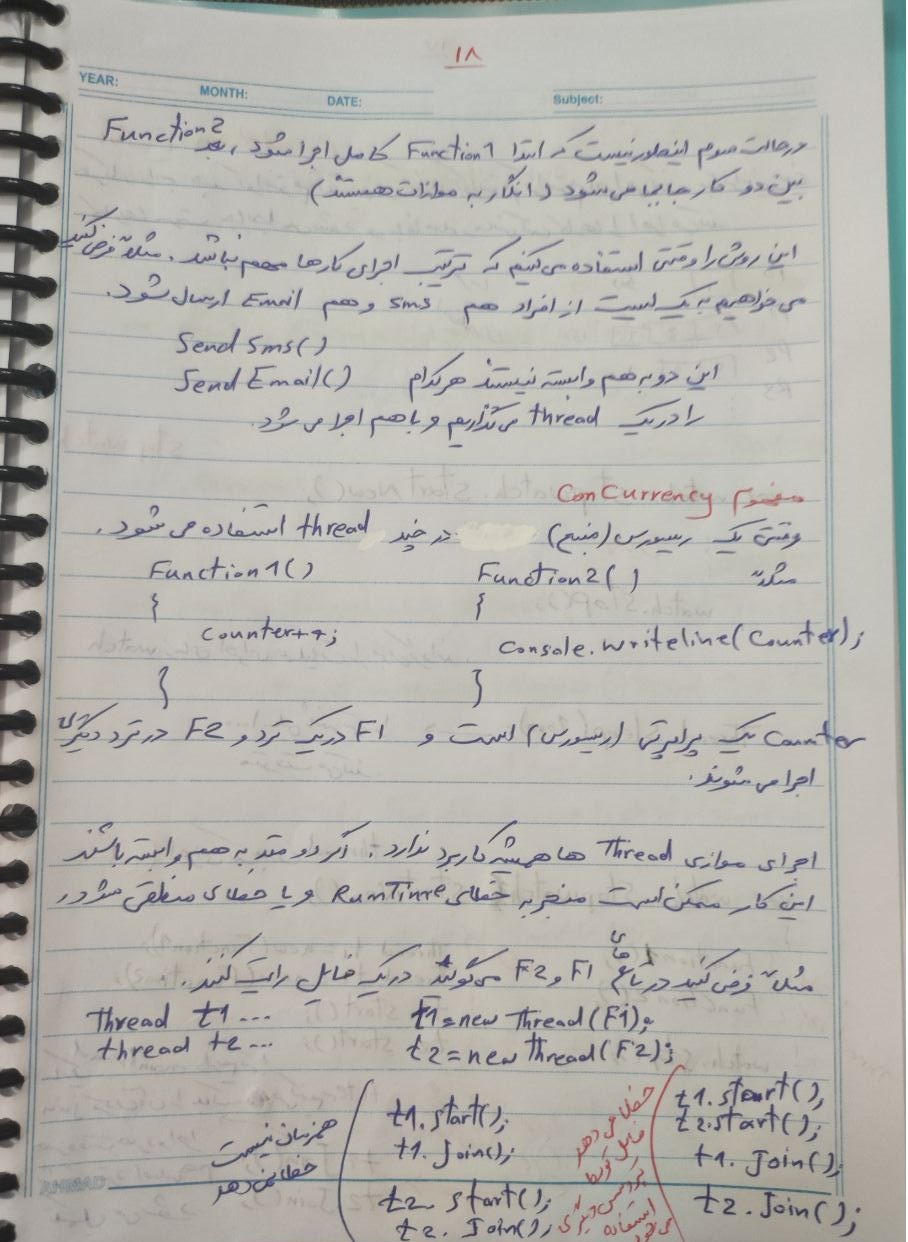 ۱۸
YEAR: MONTH: DATE: Subject:
در حالت سوم اینطور نیست که ابتدا Function1 کامل اجرا شود، بعد Function2
بین دو کار جابجا می شود (انگار به موازات هستند)
این روش را وقتی استفاده می کنیم که ترتیب اجرای کارها مهم نباشد. مثلاً فرض کنید
می خواهیم به یک لیست از افراد هم sms و هم Email ارسال شود.
Send Sms()
این دو به هم وابسته نیستند هر کدام Send Email()
را در یک thread می گذاریم و با هم اجرا می شود.
مفهوم ConCurrency
وقتی یک ریسورس (منبع) در چند thread استفاده می شود.
مثلاً Function2() Function1()
{ {
Console.writeline(Counter); Counter++;
} }
Counter یک پراپرتی (ریسورس) است و F1 در یک ترد و F2 در ترد دیگری
اجرا می شوند.
اجرای موازی Thread ها همیشه کاربرد ندارد. اگر دو متد به هم وابسته باشند
این کار ممکن است منجر به خطای RunTime و یا خطای منطقی شود
مثلاً فرض کنید در F1 و F2 در یک فایل رایت کنند.
Thread t1 ... t1=new Thread(F1);
thread t2 ... t2=new Thread(F2);
t1.start(); خطا می دهد t1.start(); همزمان نیست
t2.start(); فایل توسط t1.Join(); خطا نمی دهد
t1.Join(); پردسس دیگری t2.start();
t2.Join(); استفاده می شود t2.Join();
AHMAD